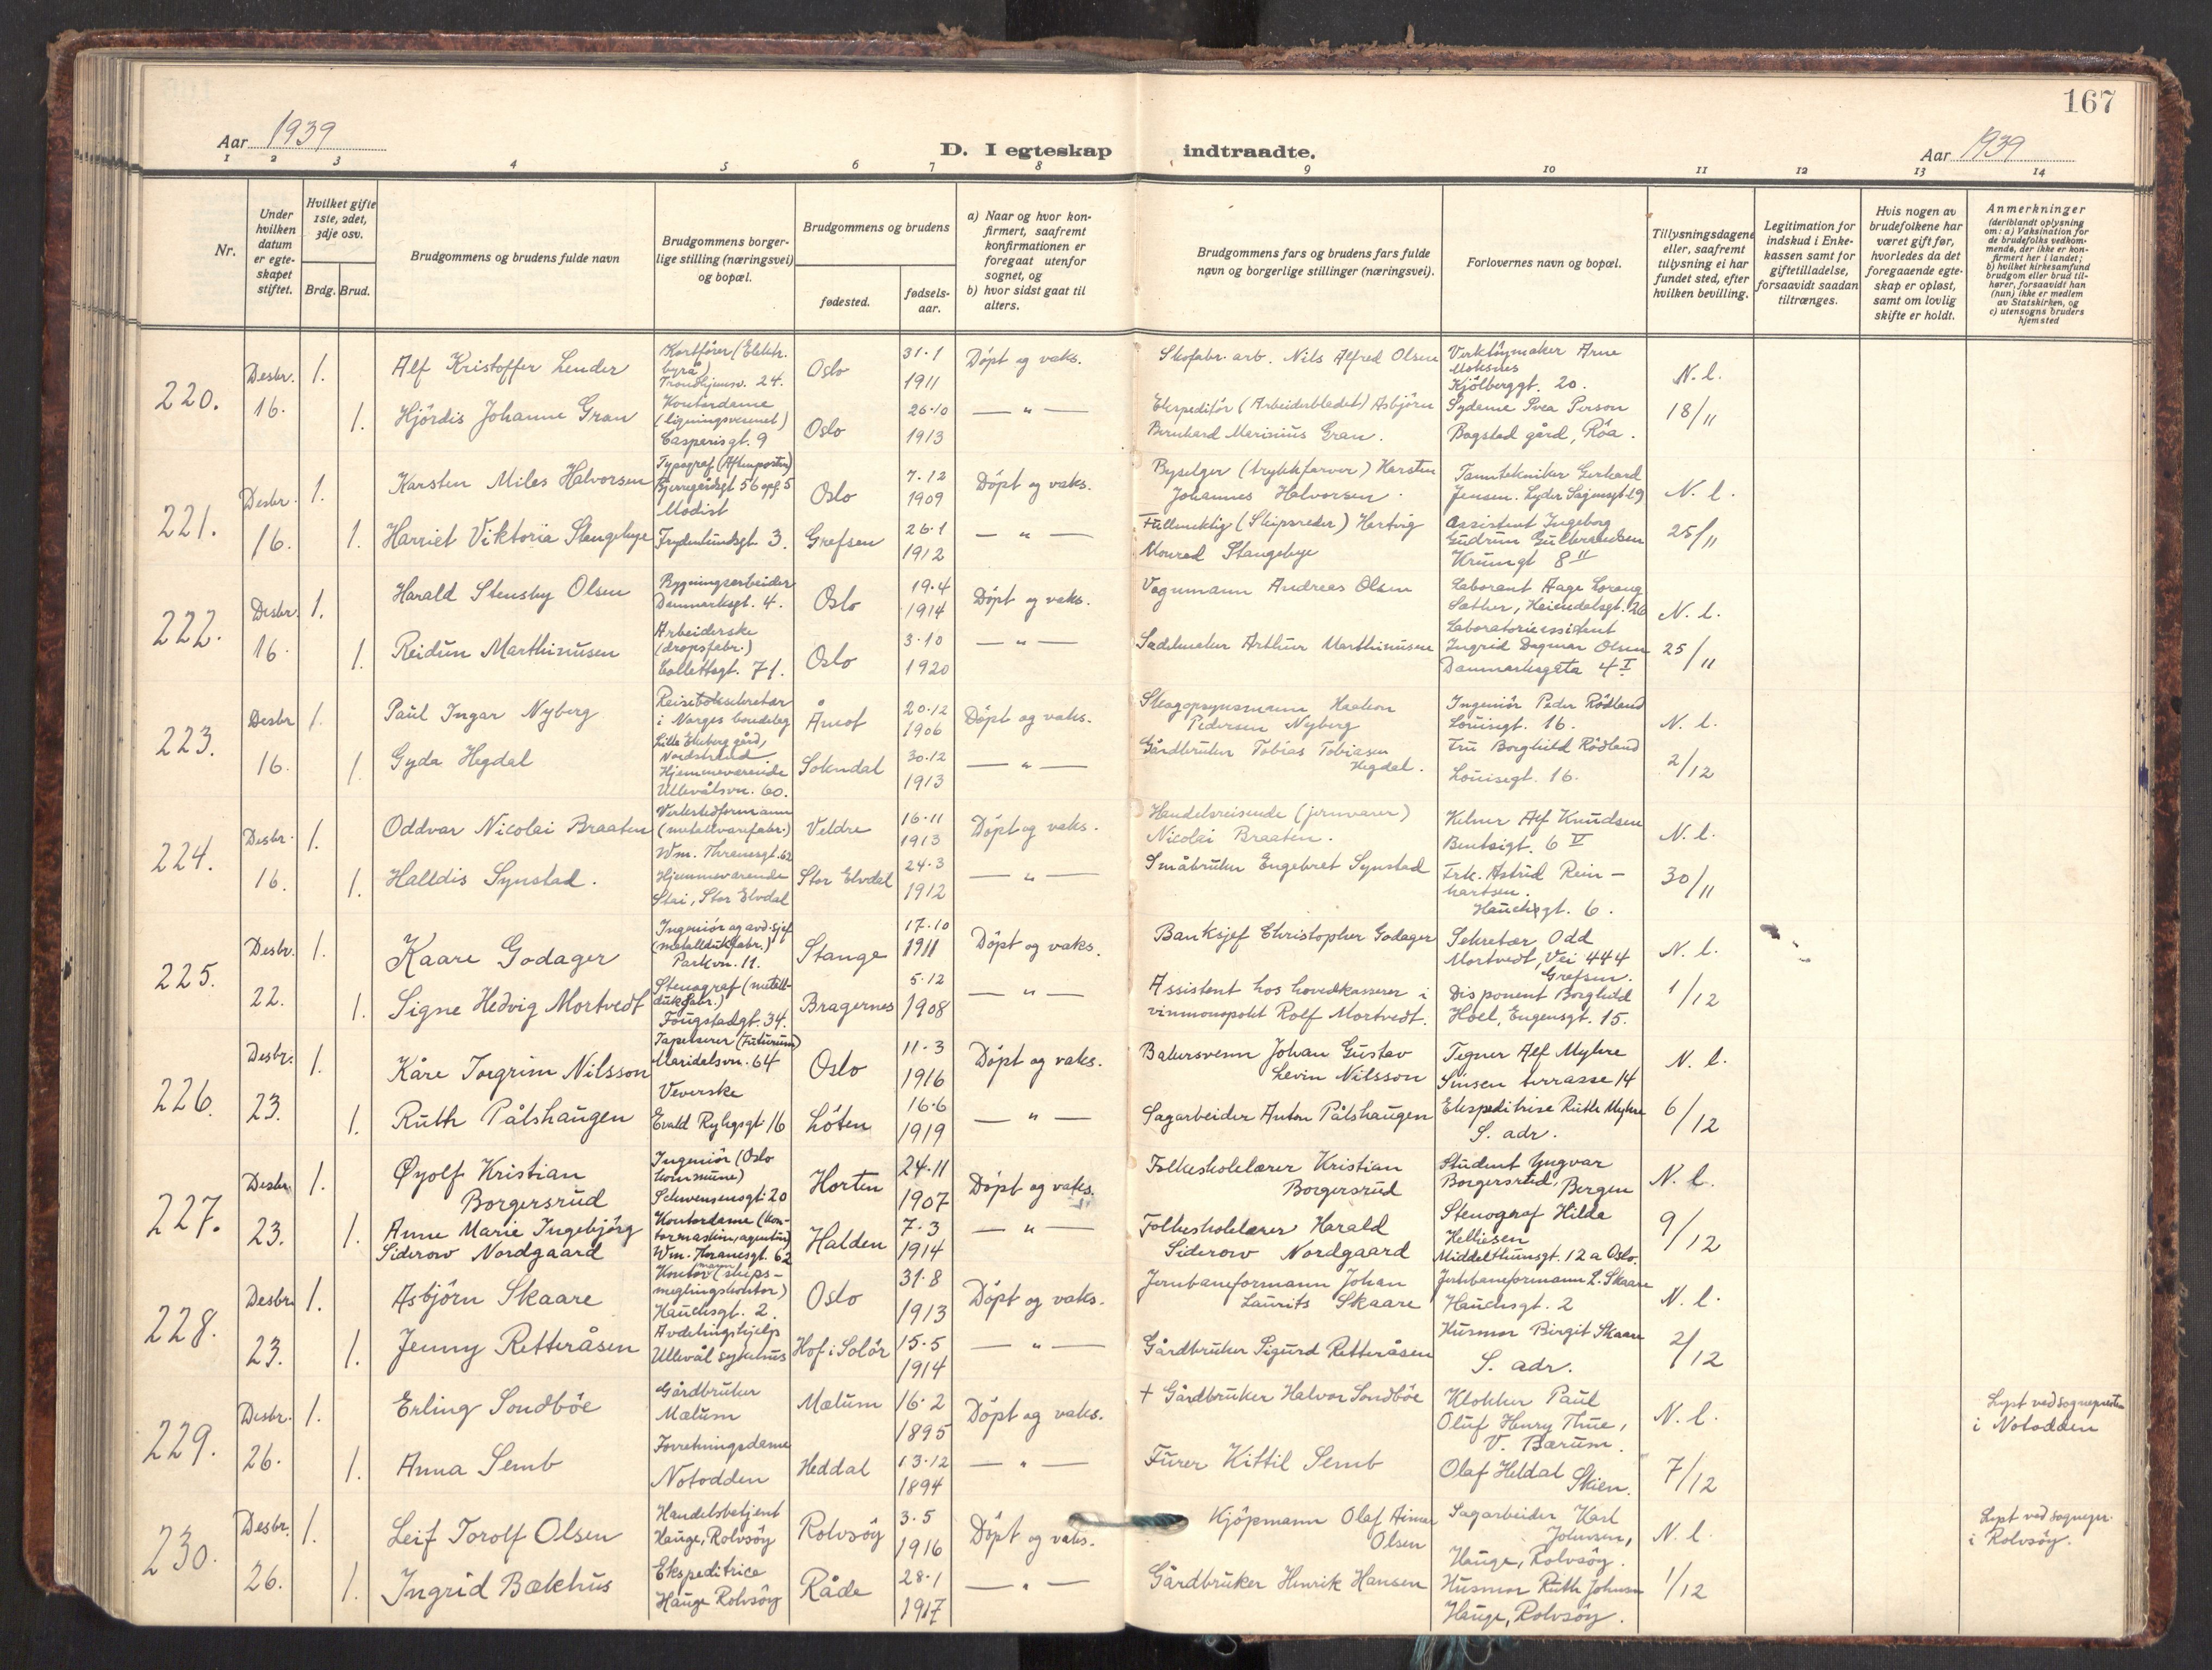 167
Aar 1939
D. I egteskap indtraadte.
Aar 1939
1 2 3 4 5 6 7 8 9 10 11 12 13 14
Nr.
Under hvilken datum er egteskapet stiftet.
Hvilket gifte 1ste, 2det, 3dje osv.
Brdg. Brud.
Brudgommens og brudens fulde navn
Brudgommens borgerlige stilling (næringsvei) og bopæl.
Brudgommens og brudens
fødested.
fødselsaar.
a) Naar og hvor konfirmert, saafremt konfirmationen er foregaat utenfor sognet, og
b) hvor sidst gaat til alters.
Brudgommens fars og brudens fars fulde navn og borgerlige stillinger (næringsvei).
Forlovernes navn og bopæl.
Tillysningsdagene eller, saafremt tillysning ei har fundet sted, efter hvilken bevilling.
Legitimation for indskud i Enkekassen samt for giftetilladelse, forsaavidt saadan tiltrænges.
Hvis nogen av brudefolkene har været gift før, hvorledes da det foregaaende egteskap er opløst, samt om lovlig skifte er holdt.
Anmerkninger
(deriblandt oplysning om: a) Vaksination for de brudefolks vedkommende, der ikke er konfirmert her i landet;
b) hvilket kirkesamfund brudgom eller brud tilhører, forsaavidt han (hun) ikke er medlem av Statskirken, og
c) utensogns bruders hjemsted
220. Desbr. 16.
1. Alf Kristoffer Lender
Kartfører (Elektr. byrå) Trondhjemsv. 24.
Oslo 31.1 1911 Döpt og vaks.
Skofabr. arb. Nils Alfred Olsen
Verktöymaker Arne Moksnes Kjölberggt. 20.
N. l.
1. Hjördis Johanne Gran
Kontordame (ligningsvesenet) Casparisgt. 9
Oslo 26.10 1913 — " —
Ekspeditör (Arbeiderbladet) Asbjörn Bernhard Marinius Gran.
Sydame Svea Person Bogstad gård, Röa.
18/11
221. Desbr. 16.
1. Karsten Miles Halvorsen
Typograf (Aftenposten) Bjerregårdsgt 56 opg 5
Oslo 7.12 1909 Döpt og vaks.
Byselger (trykkfarver) Karsten Johannes Halvorsen.
Tanntekniker Gerhard Jensen. Lyder Sagensgt. 19
N. l.
1. Harriet Viktoria Stengebye
Modist Frydenlundsgt. 3.
Grefsen 26.1 1912 — " —
Fullmektig (Skipsreder) Hartvig Monrad Stangebye
Assistent Ingeborg Gudrun Gulbrandsen Krumgt 8 II
25/11
222. Desbr. 16.
1. Harald Stensby Olsen
Bygningsarbeider Danmarksgt. 4.
Oslo 19.4 1914 Döpt og vaks.
Vognmann Andreas Olsen
Laborant Aage Lorang Sæther, Heimdalsgt. 26
N. l.
1. Reidun Marthinusen
Arbeiderske (dropsfabr.) Collettsgt. 71.
Oslo 3.10 1920 — " —
Sadelmaker Arthur Marthinusen
Laboratorieassistent Ingrid Dagmar Olsen Danmarksgata 4 I
25/11
223. Desbr 16.
1. Paul Ingar Nyberg
Reisesekretær i Norges bondelag Lille Ekeberg gård, Nordstrand
Åmot 20.12 1906 Döpt og vaks.
Skogopsynsmann Haakon Pedersen Nyberg
Ingeniör Peder Rödland Louisegt. 16.
N. l.
1. Gyda Hegdal
Hjemmeværende Ullevålsvn. 60.
Sokndal 30.12 1913 — " —
Gårdbruker Tobias Tobiasen Hegdal.
Fru Borghild Rödland Louisegt. 16.
2/12
224. Desbr. 16.
1. Oddvar Nicolai Braaten
Verkstedformann (metallvarefabr.) Wm. Thranesgt. 62
Veldre 16.11 1913 Döpt og vaks.
Handelsreisende (jernvarer) Nicolai Braaten.
Kelner Alf Knudsen Bentsegt. 6 V
N. l.
1. Halldis Synstad.
Hjemmeværende Stai, Stor Elvdal
Stor Elvdal 24.3 1912 — " —
Småbruker Engebret Synstad
Frk. Astrid Reinhartsen. Hauchsgt. 6.
30/11
225. Desbr. 22.
1. Kaare Godager
Ingeniör og avd.sjef (metallduk fabr.) Parkvn. 11.
Stange 17.10 1911 Döpt og vaks.
Banksjef Christopher Godager
Sekretær Odd Mortvedt, Vei 444 Grefsen.
N. l.
1. Signe Hedvig Mortvedt
Stenograf (metallduk fabr.) Fougstadgt. 34.
Bragernes 5.12 1908 — " —
Assistent hos hovedkasserer i vinmonopolet Rolf Mortvedt.
Disponent Borghild Hoel, Eugensgt. 15.
1/12
226. Desbr. 23.
1. Kåre Torgrim Nilsson
Tapetserer (Futurum) Maridalsvn. 64
Oslo 11.3 1916 Döpt og vaks.
Bakersvenn Johan Gustav Levin Nilsson
Tegner Alf Myhre Sinsen terrasse 14
N. l.
1. Ruth Pålshaugen
Veverske Evald Ryhgsgt 16
Löten 16.6 1919 — " —
Sagarbeider Anton Pålshaugen
Ekspeditrise Ruth Myhre S. adr.
6/12
227. Desbr 23.
1. Øyolf Kristian Borgersrud
Ingeniör (Oslo kommune) Schwensensgt. 20
Horten 24.11 1907 Döpt og vaks.
Folkeskolelærer Kristian Borgersrud
Student Yngvar Borgersrud, Bergen
N. l.
1. Anne Marie Ingebjörg Siderow Nordgaard
Kontordame (kontormaskin, agentur) Wm. Thranesgt. 62
Halden 7.3 1914 — " —
Folkeskolelærer Harald Siderow Nordgaard
Stenograf Hilda Helliesen Middelthunsgt. 12 a Oslo.
9/12
228. Desbr. 23.
1. Asbjörn Skaare
Kontormann (skipsmeglingskontor) Hauchsgt. 2.
Oslo 31.8 1913 Döpt og vaks.
Jernbaneformann Johan Laurits Skaare
Jernbaneformann L. Skaare Hauchsgt. 2
N. l.
1. Jenny Retteråsen
Avdelingshjelp Ullevål sykehus
Hof i Solör 15.5 1914 — " —
Gårdbruker Sigurd Retteråsen
Husmor Birgit Skaare S. adr.
2/12
229. Desbr. 26.
1. Erling Sondböe
Gårdbruker Mælum
Mælum 16.2 1895 Döpt og vaks.
+ Gårdbruker Halvor Sondböe
Klokker Paul Oluf Henry Thue, V. Bærum.
N. l.
Lyst ved sognepresten i Notodden
1. Anna Semb
Forretningsdame Notodden
Heddal 13.12 1894 — " —
Fürer Kittil Semb
Olaf Heldal Skien.
7/12
230. Desbr. 26.
1. Leif Torolf Olsen
Handelsbetjent Hauge, Rolvsöy
Rolvsöy 3.5 1916 Döpt og vaks.
Kjöpmann Olaf Aimar Olsen
Sagarbeider Karl Johnsen, Hauge, Rolvsöy.
N. l.
Lyst ved sognepr. i Rolvsöy.
1. Ingrid Bækhus
Ekspeditrice Hauge Rolvsöy
Råde 28.1 1917 — " —
Gårdbruker Henrik Hansen
Husmor Ruth Johnsen Hauge, Rolvsöy.
1/12